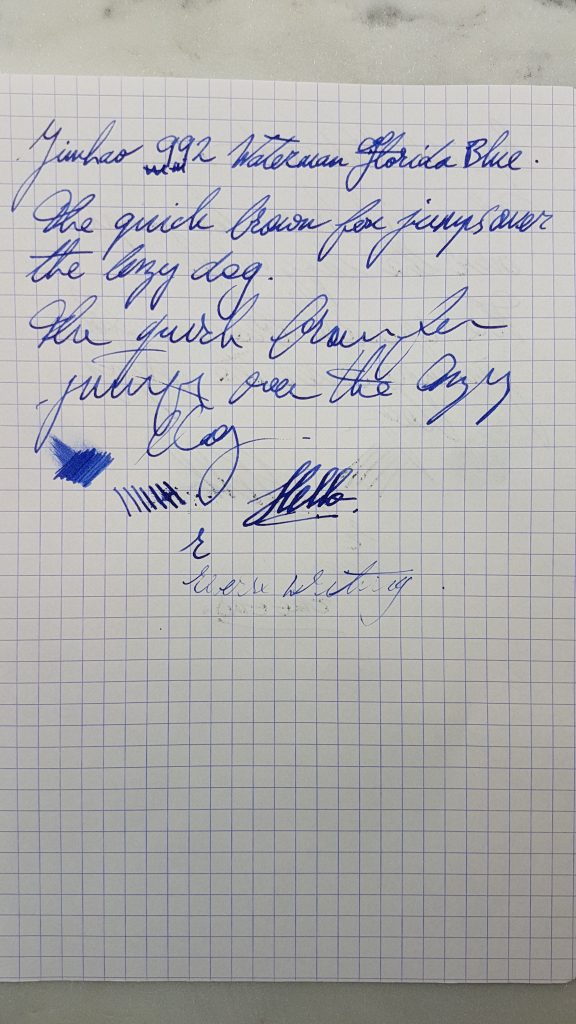 Jinhao 992 Waterman Florida Blue.
The quick brown fox jumps over
the lazy dog.
The quick brown fox
jumps over the lazy
dog
Hello.
r
reverse writing.